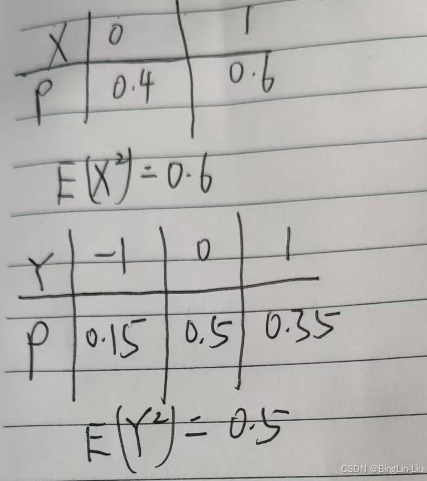 X 0 1
P 0.4 0.6
E(X²)=0.6
Y -1 0 1
P 0.15 0.5 0.35
E(Y²)= 0.5
CSDN @BingLin-Liu